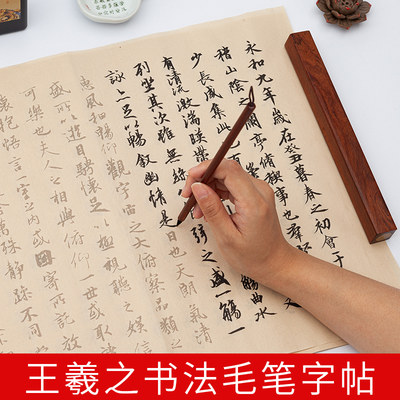 永和九年歲在癸丑暮春之初會于
稽山陰之蘭亭脩禊事也羣
少長咸集此
有清流激湍暎帶
觴曲水
列坐其次雖無絲
之盛一觴一
詠亦足以暢敘幽情是日也天朗氣清
惠風和暢仰觀宇宙之大俯察品類之
盛所以遊目騁懷足以極視聽之娛信
可樂也夫人之相與俯仰一世或取諸
懷抱悟言一室之內或
寄所託放
殊靜躁不同
王羲之书法毛笔字帖